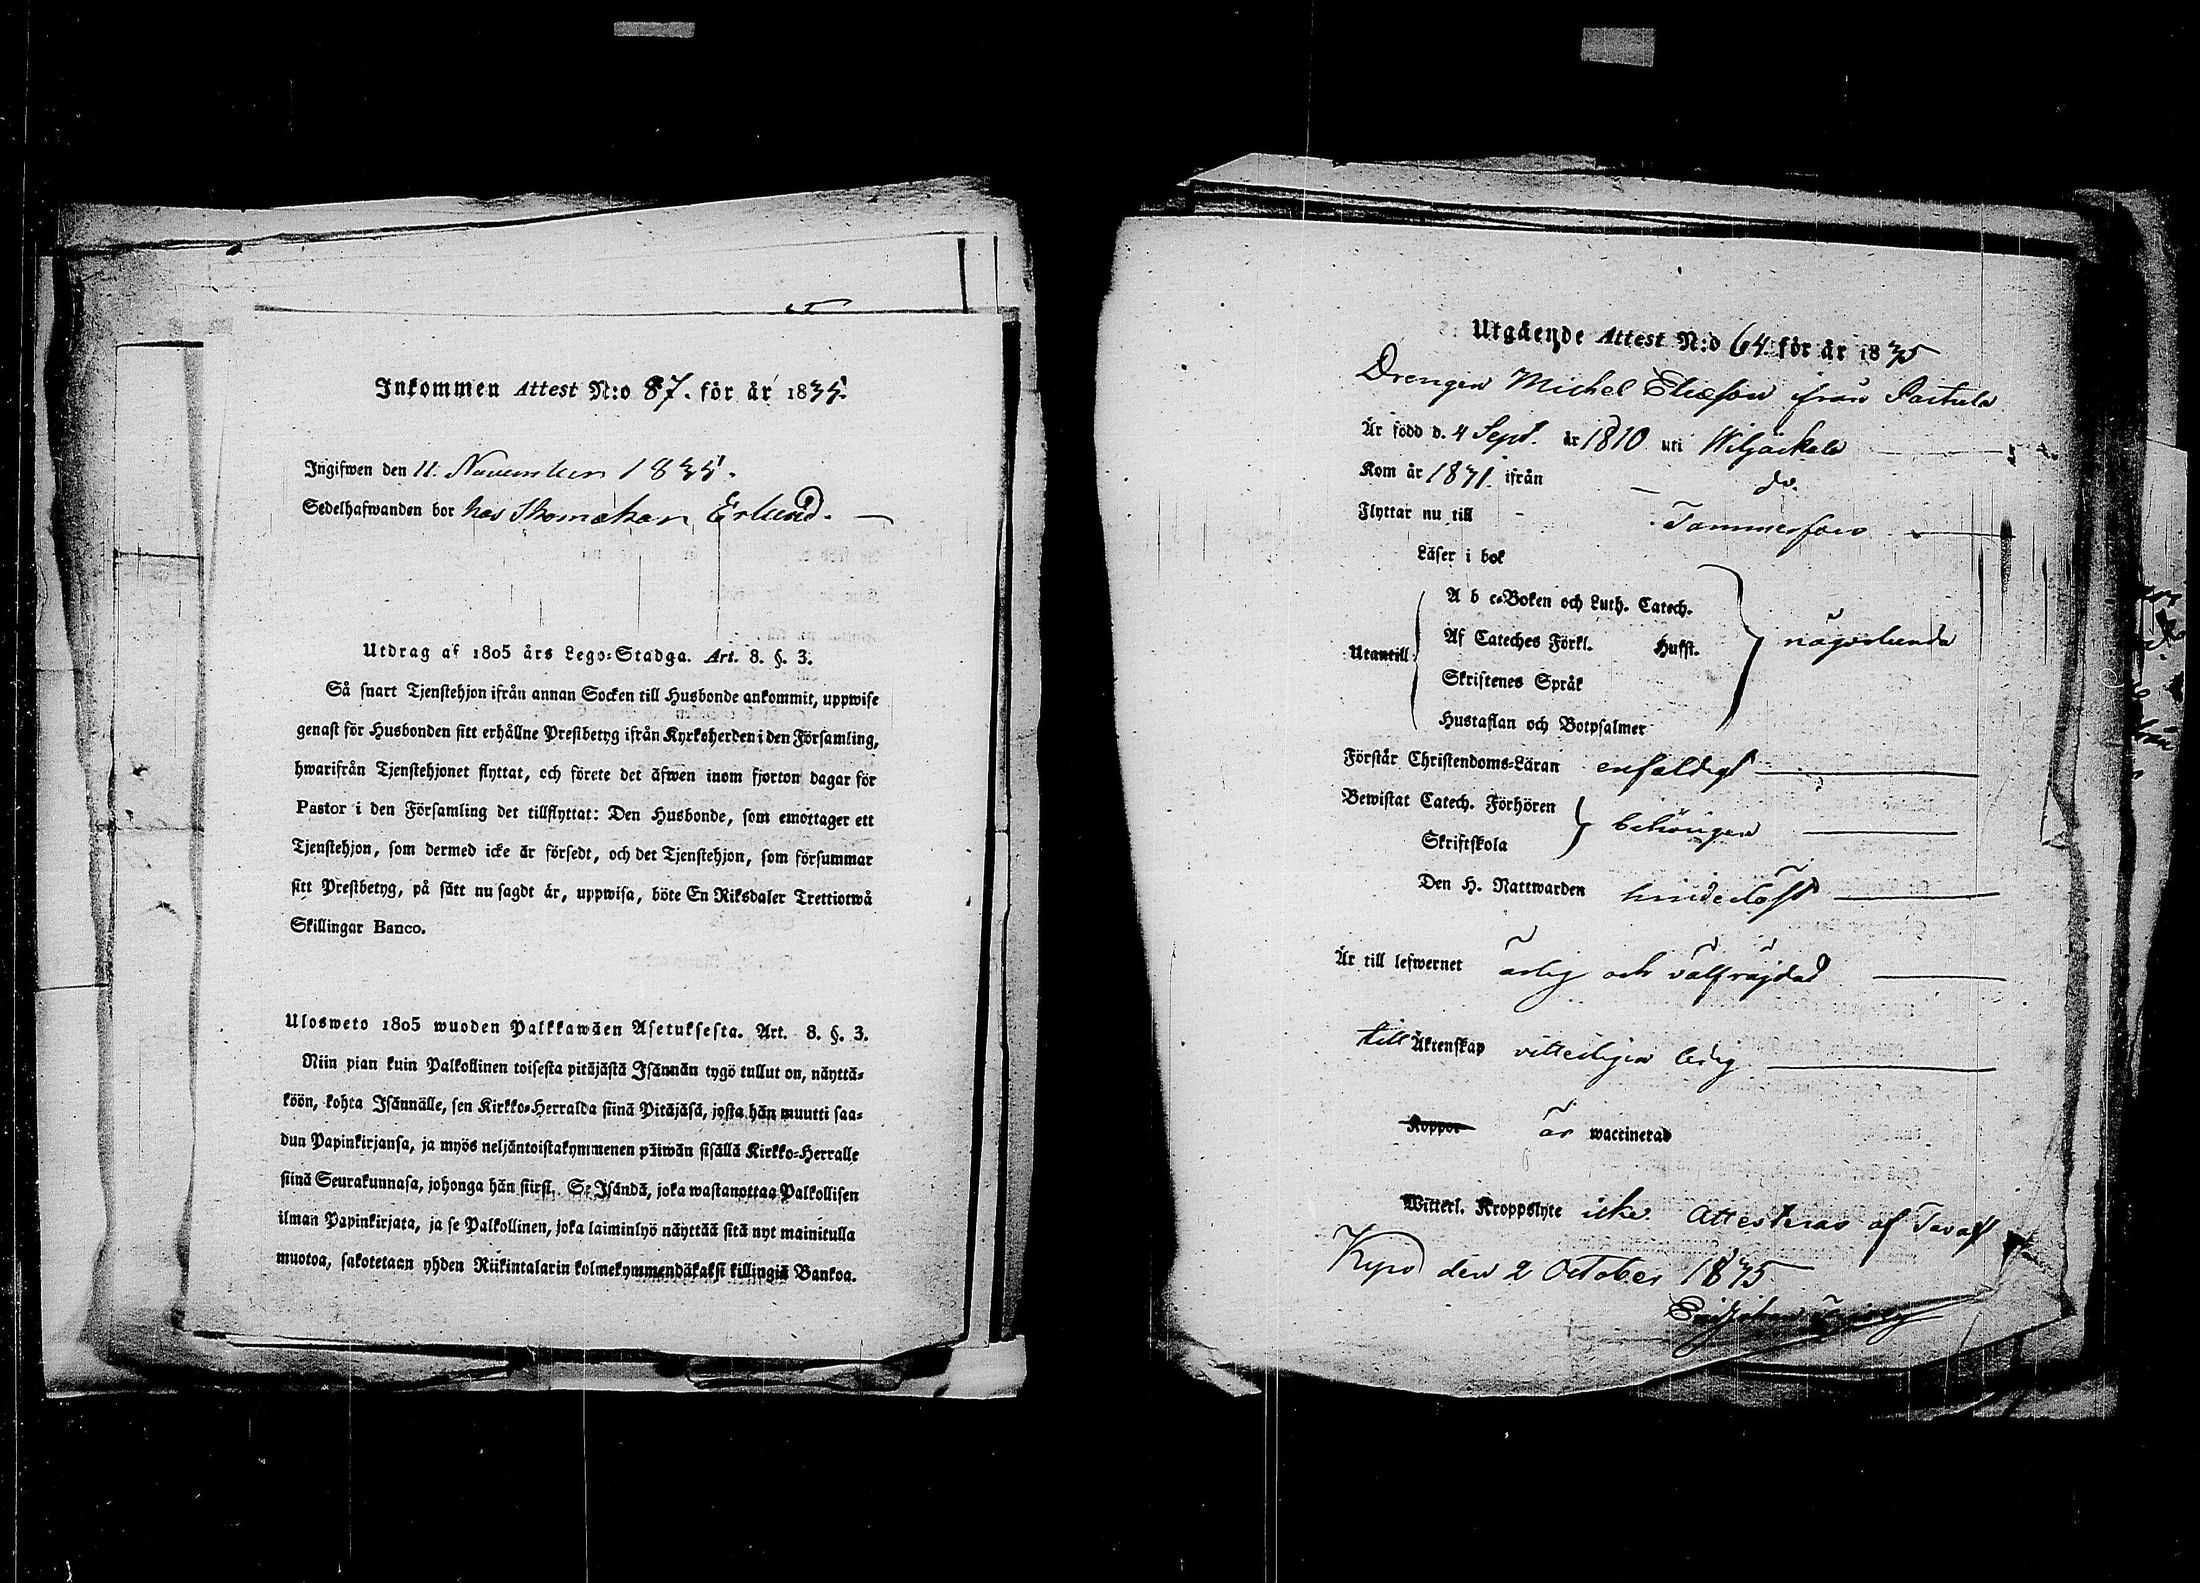 Inkommen Attest N:o 87. för år 1835.
Ingifwen den 11. November 1835.
Sedelhafwanden bor hos Skomakar Erlund.
Utdrag af 1805 års Lego-Stadga. Art. 8. §. 3.
Så snart Tjenstehjon ifrån annan Socken till Husbonde ankommit, uppwise
genast för Husbonden sitt erhållne Prestbetyg ifrån Kyrkoherden i den Församling,
hwarifrån Tjenstehjonet flyttat, och förete det äfwen inom fjorton dagar för
Pastor i den Församling det tillflyttat: Den Husbonde, som emottager ett
Tjenstehjon, som dermed icke är försedt, och det Tjenstehjon, som försummar
sitt Prestbetyg, på sätt nu sagdt är, uppwisa, böte En Riksdaler Trettiotwå
Skillingar Banco.
Ulosweto 1805 wuoden Palkkawäen Asetuksesta. Art. 8. §. 3.
Niin pian kuin Palkollinen toisesta pitäjästä Isännän tygö tullut on, näyttä-
köön, kohta Isännälle, sen Kirkko-Herralda siinä Pitäjäsä, josta hän muutti saa-
dun Papinkirjansa, ja myös neljäntoistakymmenen päiwän sisällä Kirkko-Herralle
siinä Seurakunnasa, johonga hän siirsi. Se Isändä, joka wastanottaa Palkollisen
ilman Papinkirjata, ja se Palkollinen, joka laiminlyö näyttää sitä nyt mainitulla
muotoa, sakotetaan yhden Riikintalarin kolmekymmendäkaksi killingiä Bankoa.
Utgående Attest N:o 64. för år 1835
Drengen Michel Eliæson från Partula
Är född d. 4 Sept. år 1810 uti Wiljackala
Kom år 1831. ifrån do.
Flyttar nu till Tammerfors
Läser i bok
A b c-Boken och Luth. Catech.
Utantill Af Cateches Förkl. Hufst. någorlunda
Skriftenes Språk
Hustaflan och Botpsalmer
Förstår Christendoms-Läran enfaldigt
Bewistat Catech. Förhören behörigen
Skriftskola
Den H. Nattwarden hinderlöst
Är till lefwernet ärlig och välfräjdad
till Äktenskap vitterligen ledig
Koppor är waccinerad
Witterl. Kroppslyte icke. Attesteras af Tavast
Kyro den 2 October 1835